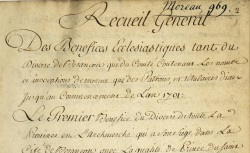 Moreau 969. 2
Recueil General
Des Benefices Eclesiastiques tant du
Diocese de Besançon que du Comté Contenans Les
et inceptions de mesme que des Patrons et titulaires d'iceux
Jusqu'au Commancement de L'an 1701.
Le Premier Benefice du Diocese de toute La
Province est L'archeveché qui a son siege dans La
Cité de Besançon avec La qualité de Prince du